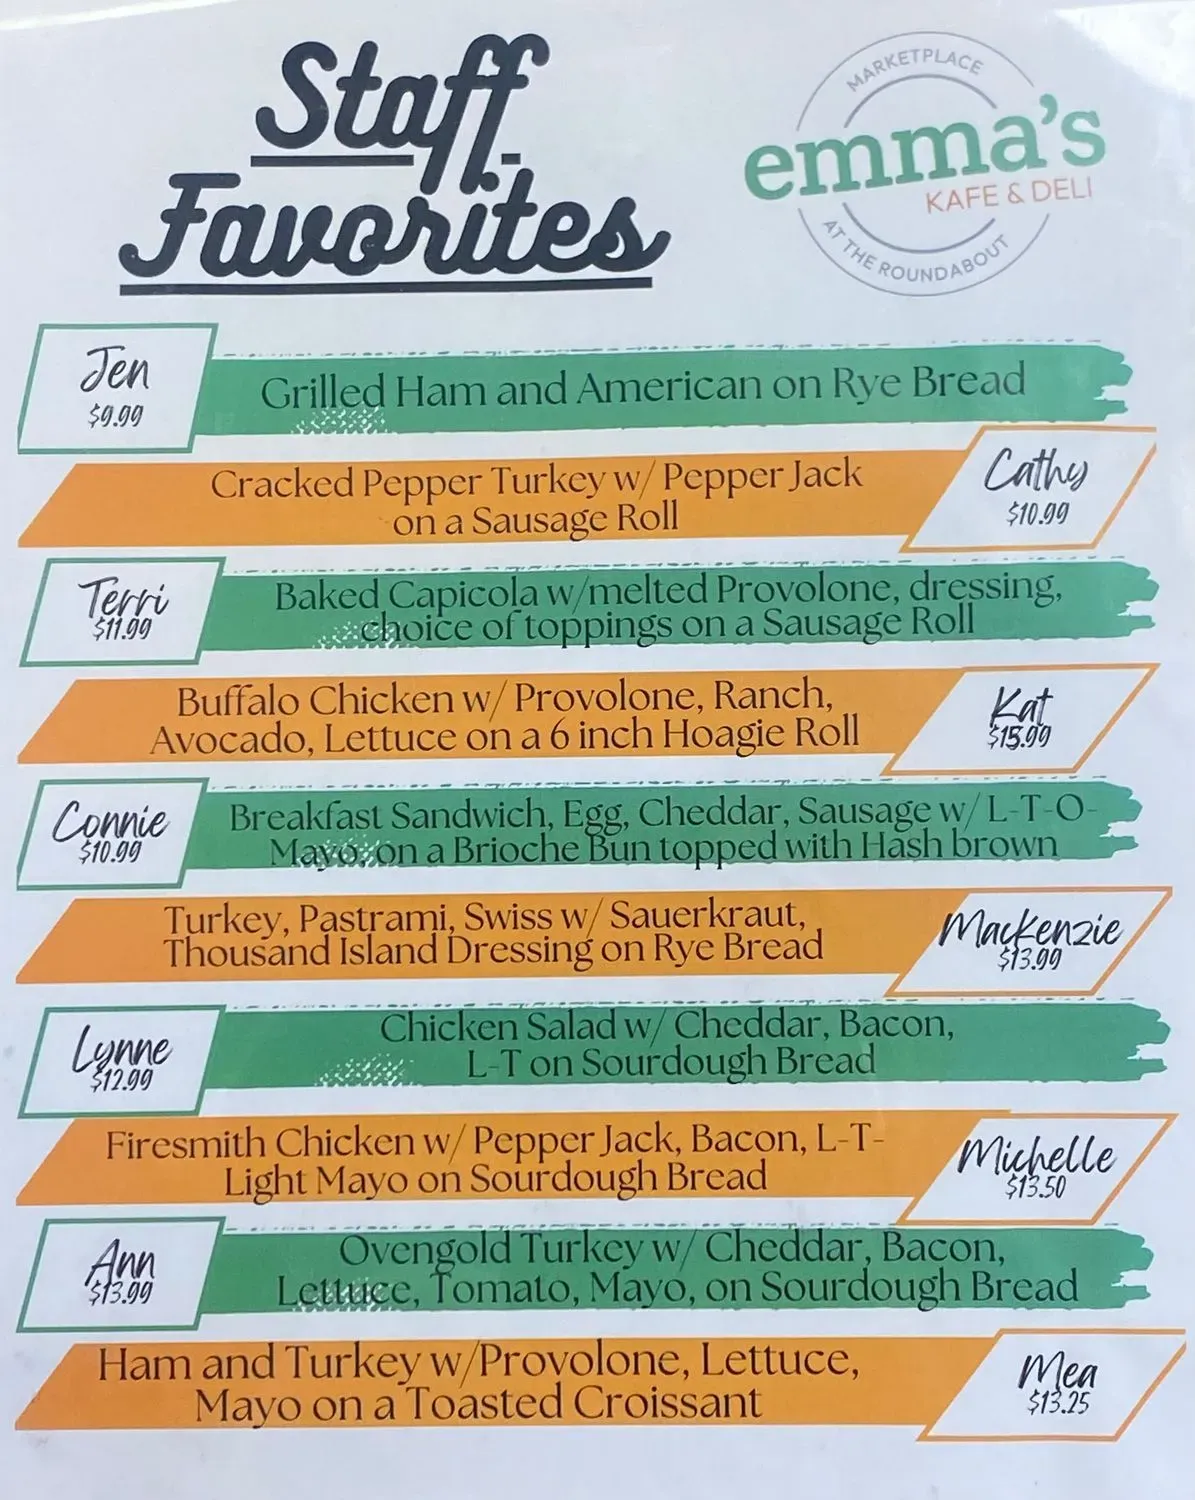 Staff
Favorites
MARKETPLACE
emma's
KAFE & DELI
AT THE ROUNDABOUT
Jen
$9.99
Grilled Ham and American on Rye Bread
Cracked Pepper Turkey w/ Pepper Jack
on a Sausage Roll
Cathy
$10.99
Terri
$11.99
Baked Capicola w/melted Provolone, dressing,
choice of toppings on a Sausage Roll
Buffalo Chicken w/ Provolone, Ranch,
Avocado, Lettuce on a 6 inch Hoagie Roll
Kat
$15.99
Connie
$10.99
Breakfast Sandwich, Egg, Cheddar, Sausage w/ L-T-O-
Mayo, on a Brioche Bun topped with Hash brown
Turkey, Pastrami, Swiss w/ Sauerkraut,
Thousand Island Dressing on Rye Bread
Mackenzie
$13.99
Lynne
$12.99
Chicken Salad w/ Cheddar, Bacon,
L-T on Sourdough Bread
Firesmith Chicken w/ Pepper Jack, Bacon, L-T-
Light Mayo on Sourdough Bread
Michelle
$13.50
Ann
$13.99
Ovengold Turkey w/ Cheddar, Bacon,
Lettuce, Tomato, Mayo, on Sourdough Bread
Ham and Turkey w/Provolone, Lettuce,
Mayo on a Toasted Croissant
Mea
$13.25